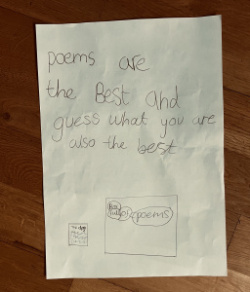 poems are
the Best and
guess what you are
also the best
poems